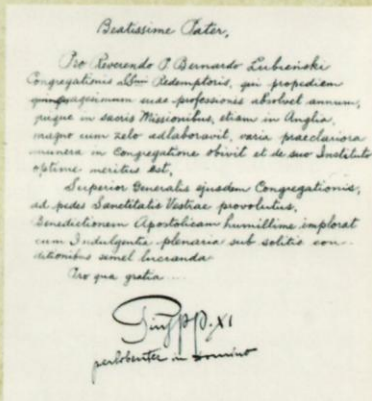 Beatissime Pater,
Pro Reverendo P. Bernardo Łubieński
Congregationis SSmi Redemptoris, qui propediem
quinquagesimum suae professionis absolvet annum,
quique in sacris Missionibus, etiam in Anglia,
magno cum zelo adlaboravit, varia praeclariora
munera in Congregatione obivit et de suo Instituto
optime meritus est,
Superior Generalis ejusdem Congregationis,
ad pedes Sanctitatis Vestrae provolutus,
Benedictionem Apostolicam humillime implorat
cum Indulgentia plenaria sub solitis con-
ditionibus semel lucranda
Pro qua gratia ....
Pius PP. XI
perlibenter in Domino